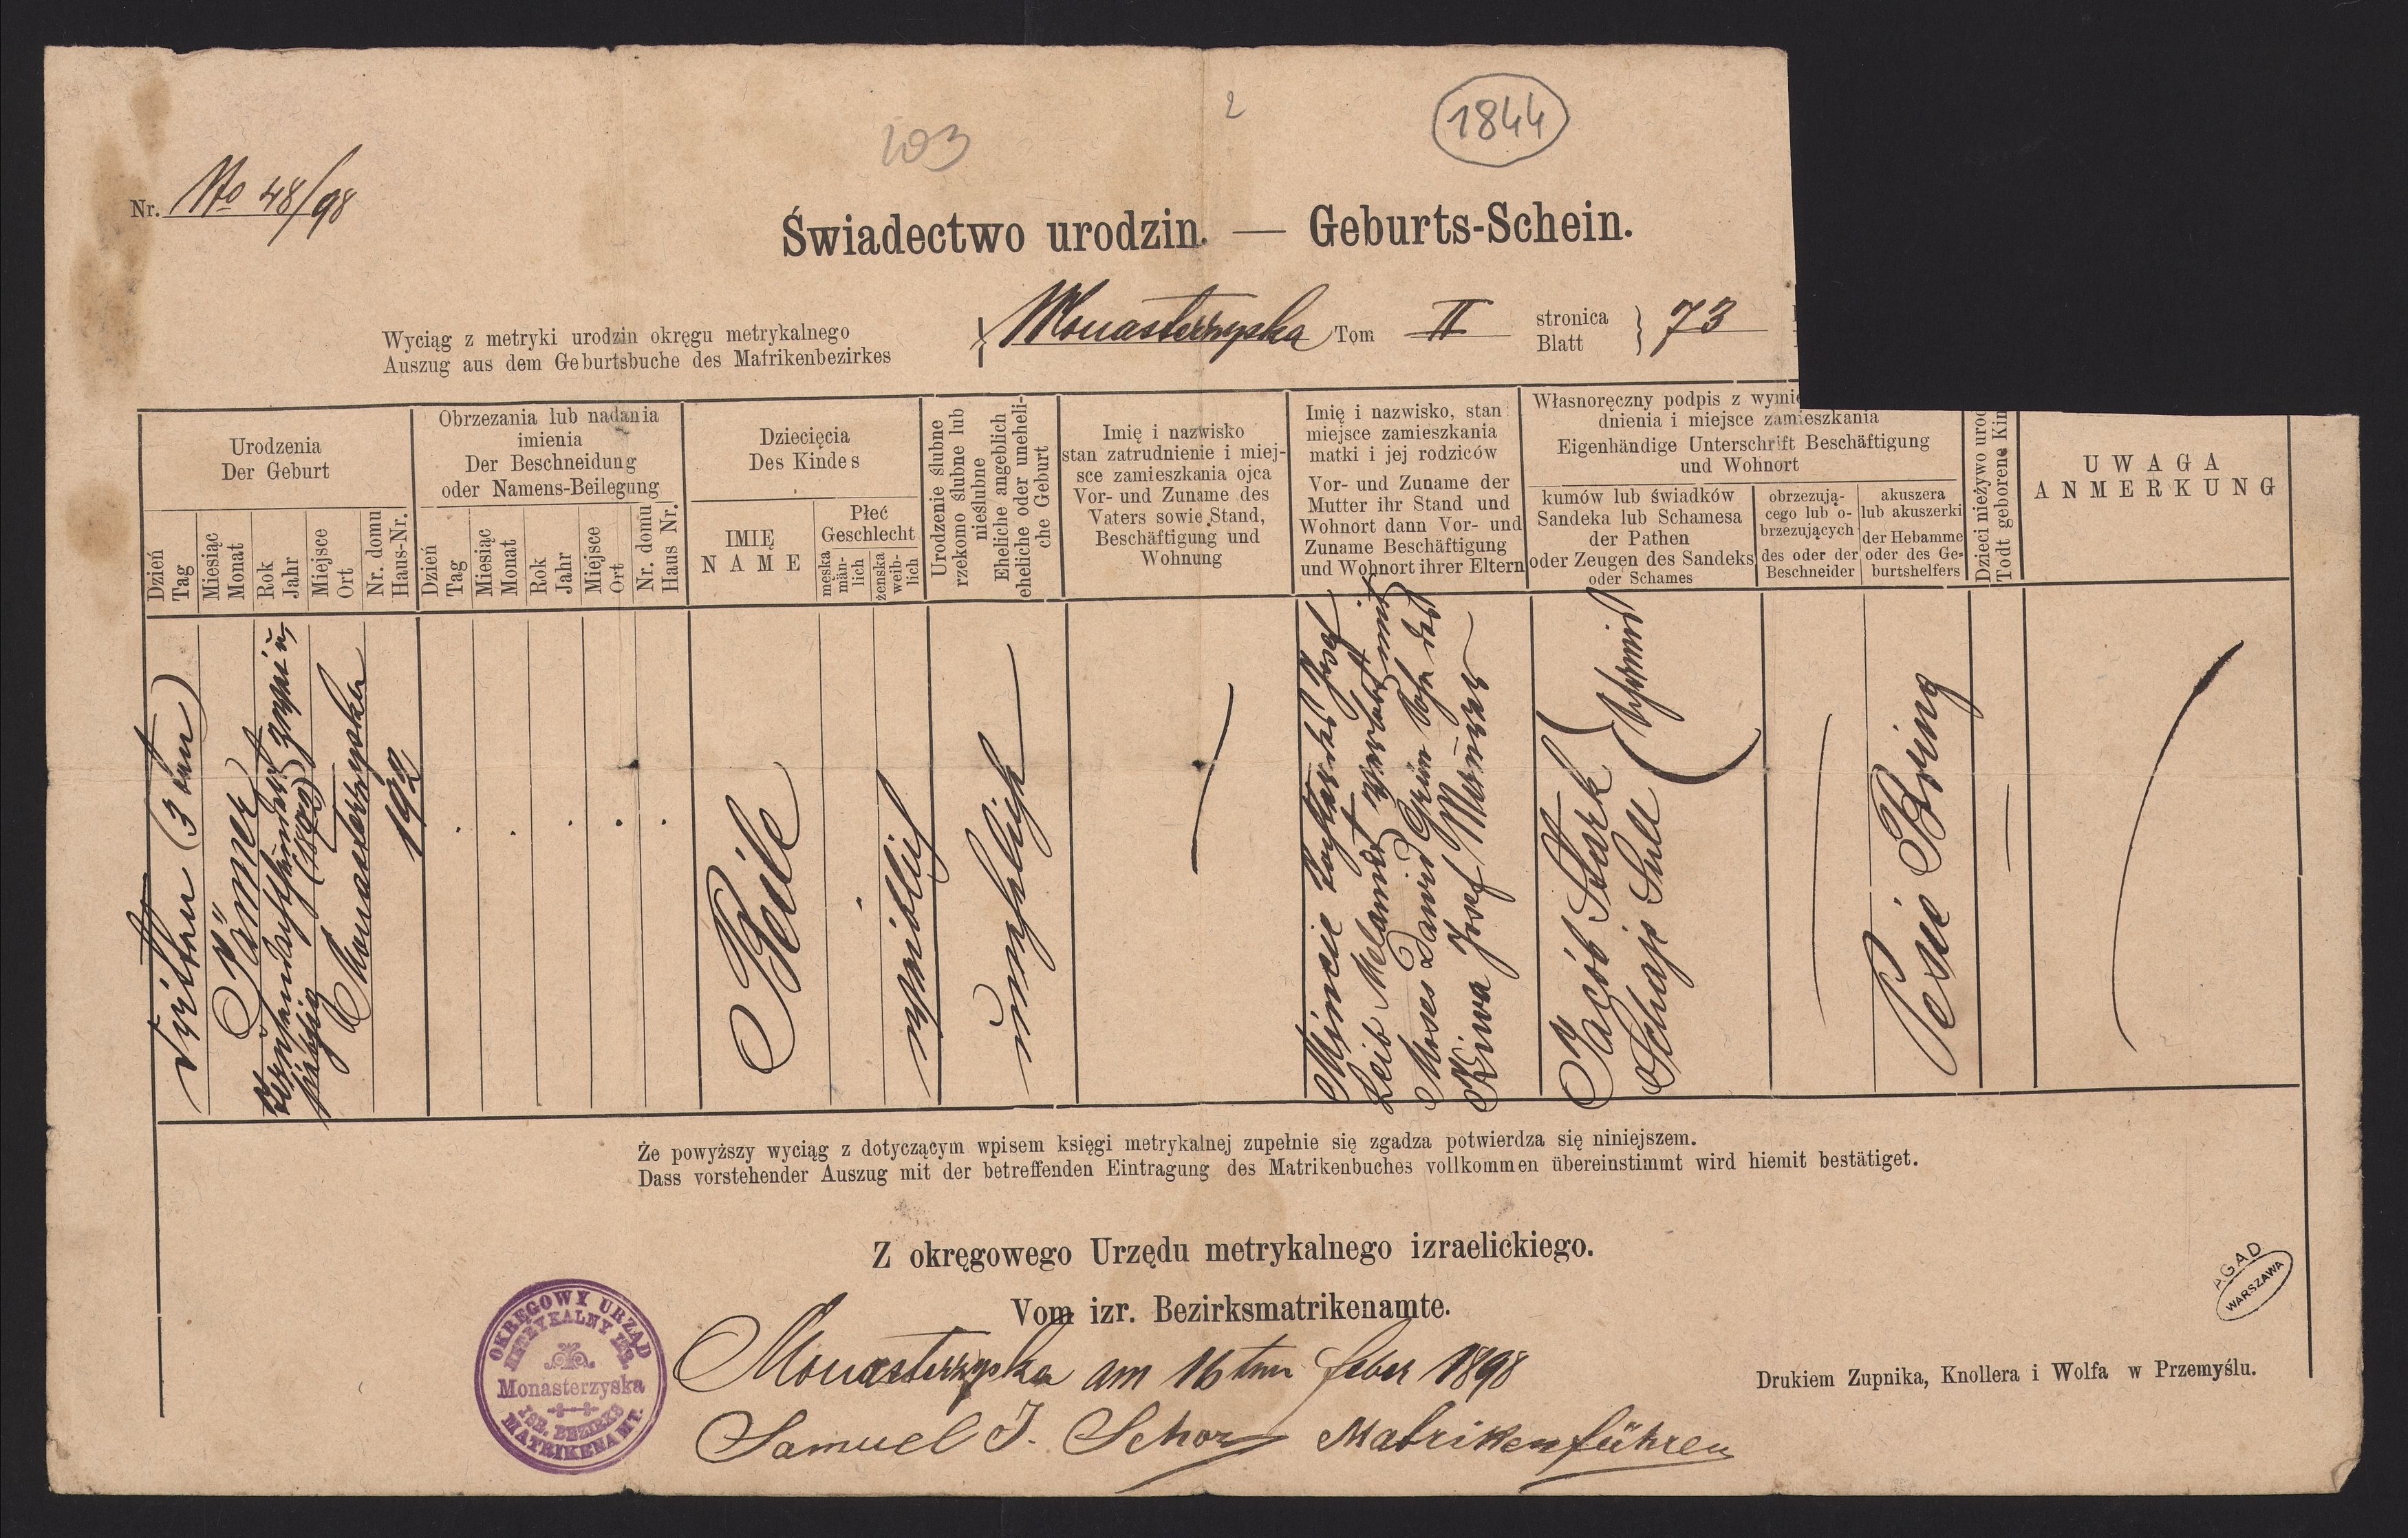 103
2
1844
Nr. No 48/98
Świadectwo urodzin. — Geburts-Schein.
Wyciąg z metryki urodzin okręgu metrykalnego
Auszug aus dem Geburtsbuche des Matrikenbezirkes
Monasterzyska Tom II stronica Blatt } 73
Urodzenia
Der Geburt
Dzień
Tag
Miesiąc
Monat
Rok
Jahr
Miejsce
Ort
Nr. domu
Haus-Nr.
Obrzezania lub nadania
imienia
Der Beschneidung
oder Namens-Beilegung
Dzień
Tag
Miesiąc
Monat
Rok
Jahr
Miejsce
Ort
Nr. domu
Haus Nr.
Dziecięcia
Des Kindes
IMIĘ
NAME
Płeć
Geschlecht
męska
män-
lich
żenska
weib-
lich
Urodzenie ślubne
rzekomo ślubne lub
nieślubne
Eheliche angeblich
eheliche oder uneheli-
che Geburt
Imię i nazwisko
stan zatrudnienie i miej-
sce zamieszkania ojca
Vor- und Zuname des
Vaters sowie Stand,
Beschäftigung und
Wohnung
Imię i nazwisko, stan
miejsce zamieszkania
matki i jej rodziców
Vor- und Zuname der
Mutter ihr Stand und
Wohnort dann Vor- und
Zuname Beschäftigung
und Wohnort ihrer Eltern
Własnoręczny podpis z wymie
dnienia i miejsce zamieszkania
Eigenhändige Unterschrift Beschäftigung
und Wohnort
kumów lub świadków
Sandeka lub Schamesa
der Pathen
oder Zeugen des Sandeks
oder Schames
obrzezują-
cego lub o-
brzezujących
des oder der
Beschneider
akuszera
lub akuszerki
der Hebamme
oder des Ge-
burtshelfers
Dzieci nieżywo urod
Todt geborene Kin
UWAGA
ANMERKUNG
Dritten (3 ten)
Jänner
Monasterzyska
192
Beile
weiblich
unehelich
Mincie Tochter des Josef
Leib Melamet verlobt mit
Moses Dawid Grün Sohn des
Kiwa Josef
Jacób Stark
Schaje Sull
Schmid
Pesie Bring
Że powyższy wyciąg z dotyczącym wpisem księgi metrykalnej zupełnie się zgadza potwierdza się niniejszem.
Dass vorstehender Auszug mit der betreffenden Eintragung des Matrikenbuches vollkommen übereinstimmt wird hiemit bestätiget.
Z okręgowego Urzędu metrykalnego izraelickiego.
Vom izr. Bezirksmatrikenamte.
OKRĘGOWY URZĄD
METRYKALNY IZR.
Monasterzyska
ISR. BEZIRKS
MATRIKENAMT.
Monasterzyska am 16ten Feber 1898
Samuel J. Schorz Matrikenführer
AGAD
WARSZAWA
Drukiem Zupnika, Knollera i Wolfa w Przemyślu.